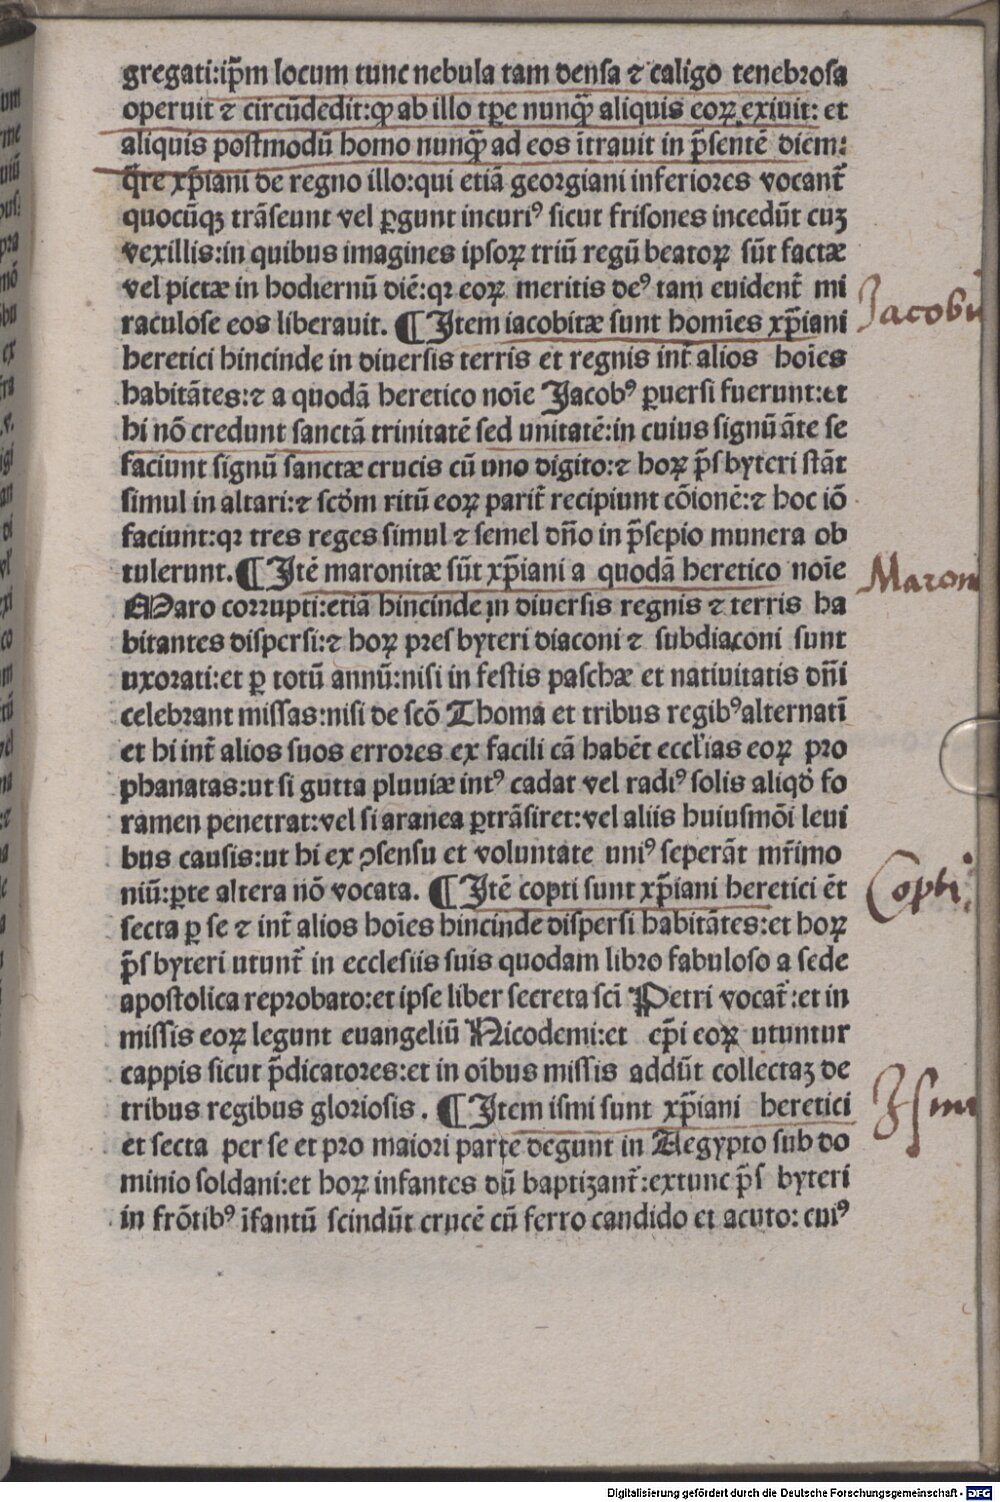 gregati:ip̄m locum tunc nebula tam densa ⁊ caligo tenebrosa
operuit ⁊ circūdedit:ꝙ ab illo tp̄e nunꝙ̄ aliquis eoꝝ exiuit: et
aliquis postmodū homo nunꝙ̄ ad eos ītrauit in p̄sentē diem:
q̄re xp̄iani de regno illo:qui etiā georgiani inferiores vocant᷑
quocūqꝫ trāseunt vel ꝑgunt incuriꝰ sicut frisones incedūt cuꝫ
vexillis:in quibus imagines ipsoꝝ triū regū beatoꝝ sūt factæ
vel pictæ in hodiernū diē:qꝛ eoꝝ meritis deꝰ tam euident᷑ mi
raculose eos liberauit. ¶ Item iacobitæ sunt homīes xp̄iani
heretici hincinde in diuersis terris et regnis int᷑ alios hoīes
habitātes:⁊ a quodā heretico noīe Jacobꝰ ꝑuersi fuerunt:et
hi nō credunt sanctā trinitatē sed unitatē:in cuius signū āte se
faciunt signū sanctæ crucis cū uno digito:⁊ hoꝝ p̄sbyteri stāt
simul in altari:⁊ scd̄m ritū eoꝝ parit᷑ recipiunt cōionē:⁊ hoc iō
faciunt:qꝛ tres reges simul ⁊ semel dn̄o in p̄sepio munera ob
tulerunt. ¶ Itē maronitæ sūt xp̄iani a quodā heretico noīe
Maro corrupti:etiā hincinde in diuersis regnis ⁊ terris ha
bitantes dispersi:⁊ hoꝝ presbyteri diaconi ⁊ subdiaconi sunt
uxorati:et ꝑ totū annū:nisi in festis paschæ et natiuitatis dn̄i
celebrant missas:nisi de scō Thoma et tribus regibꝰalternatī
et hi int᷑ alios suos errores ex facili cā habēt eccl̄ias eoꝝ pro
phanatas:ut si gutta pluuiæ intꝰ cadat vel radiꝰ solis aliqd̄ fo
ramen penetrat:vel si aranea ꝑtrāsiret:vel aliis huiusmōi leui
bus causis:ut hi ex ꝯsensu et voluntate uniꝰ seperāt mr̄imo
niū:ꝑte altera nō vocata. ¶ Itē copti sunt xp̄iani heretici ēt
secta ꝑ se ⁊ int᷑ alios hoīes hincinde dispersi habitātes:et hoꝝ
p̄sbyteri utunt᷑ in ecclesiis suis quodam libro fabuloso a sede
apostolica reprobato:et ipse liber secreta scī Petri vocat᷑:et in
missis eoꝝ legunt euangeliū Nicodemi:et ep̄i eoꝝ utuntur
cappis sicut p̄dicatores:et in oībus missis addūt collectaꝫ de
tribus regibus gloriosis. ¶ Item ismi sunt xp̄iani heretici
et secta per se et pro maiori parte degunt in Aegypto sub do
minio soldani:et hoꝝ infantes dū baptizant᷑:extunc p̄sbyteri
in frōtibꝰ īfantū scindūt crucē cū ferro candido et acuto: cuiꝰ
Jacobi
Maroni
Copti.
Ismi
Digitalisierung gefördert durch die Deutsche Forschungsgemeinschaft - DFG